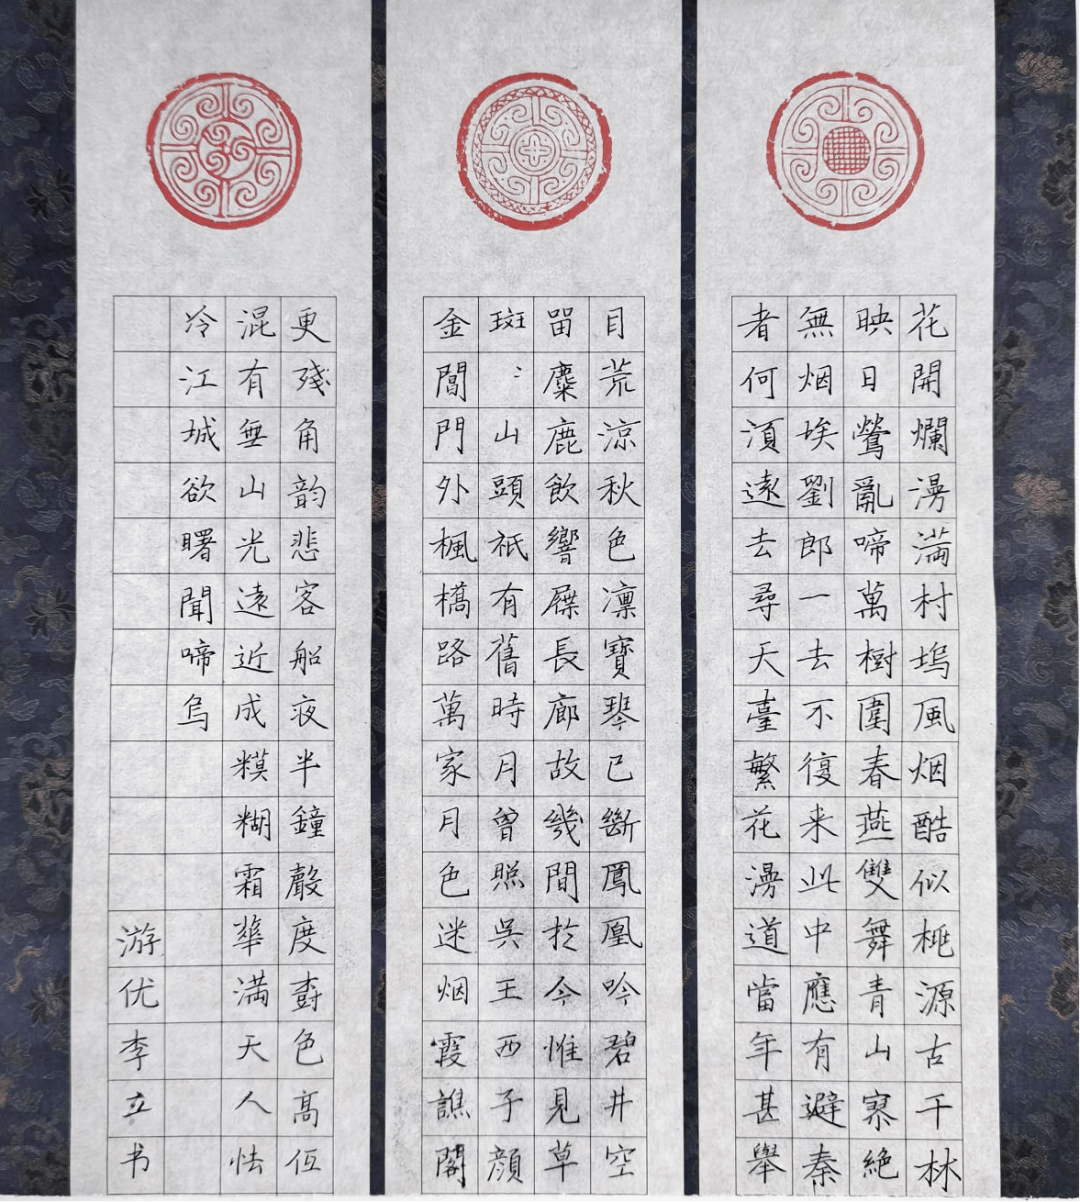 花開爛漫滿村塢風烟酷似桃源古千林
映日鶯亂啼萬樹圍春燕雙舞青山寥絕
無烟埃劉郎一去不復来此中應有避秦
者何須遠去尋天臺繁花漫道當年甚舉
目荒涼秋色凛寶琴已斷鳳凰吟碧井空
留麋鹿飲響屧長廊故幾間於今惟見草
斑〻山頭祇有舊時月曾照吳王西子顏
金閶門外楓橋路萬家月色迷烟霞譙閣
更殘角韵悲客船夜半鐘聲度杳色高低
混有無山光遠近成糢糊霜華滿天人怯
冷江城欲曙聞啼烏
游优李立书